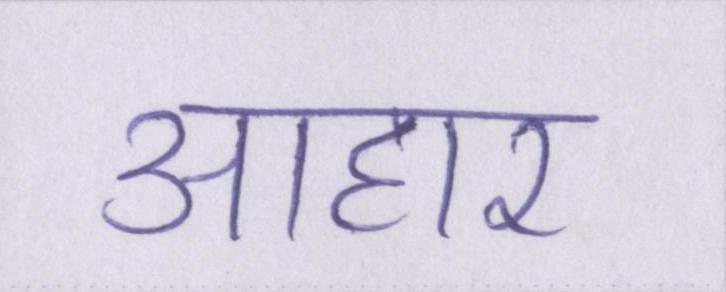 आहार